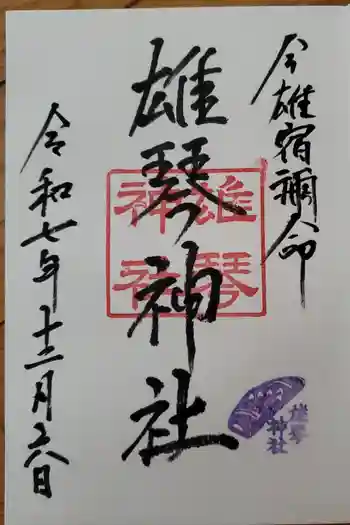 今雄宿禰命
雄琴神社
令和七年十二月二八日
雄琴
神社
雄琴
神社